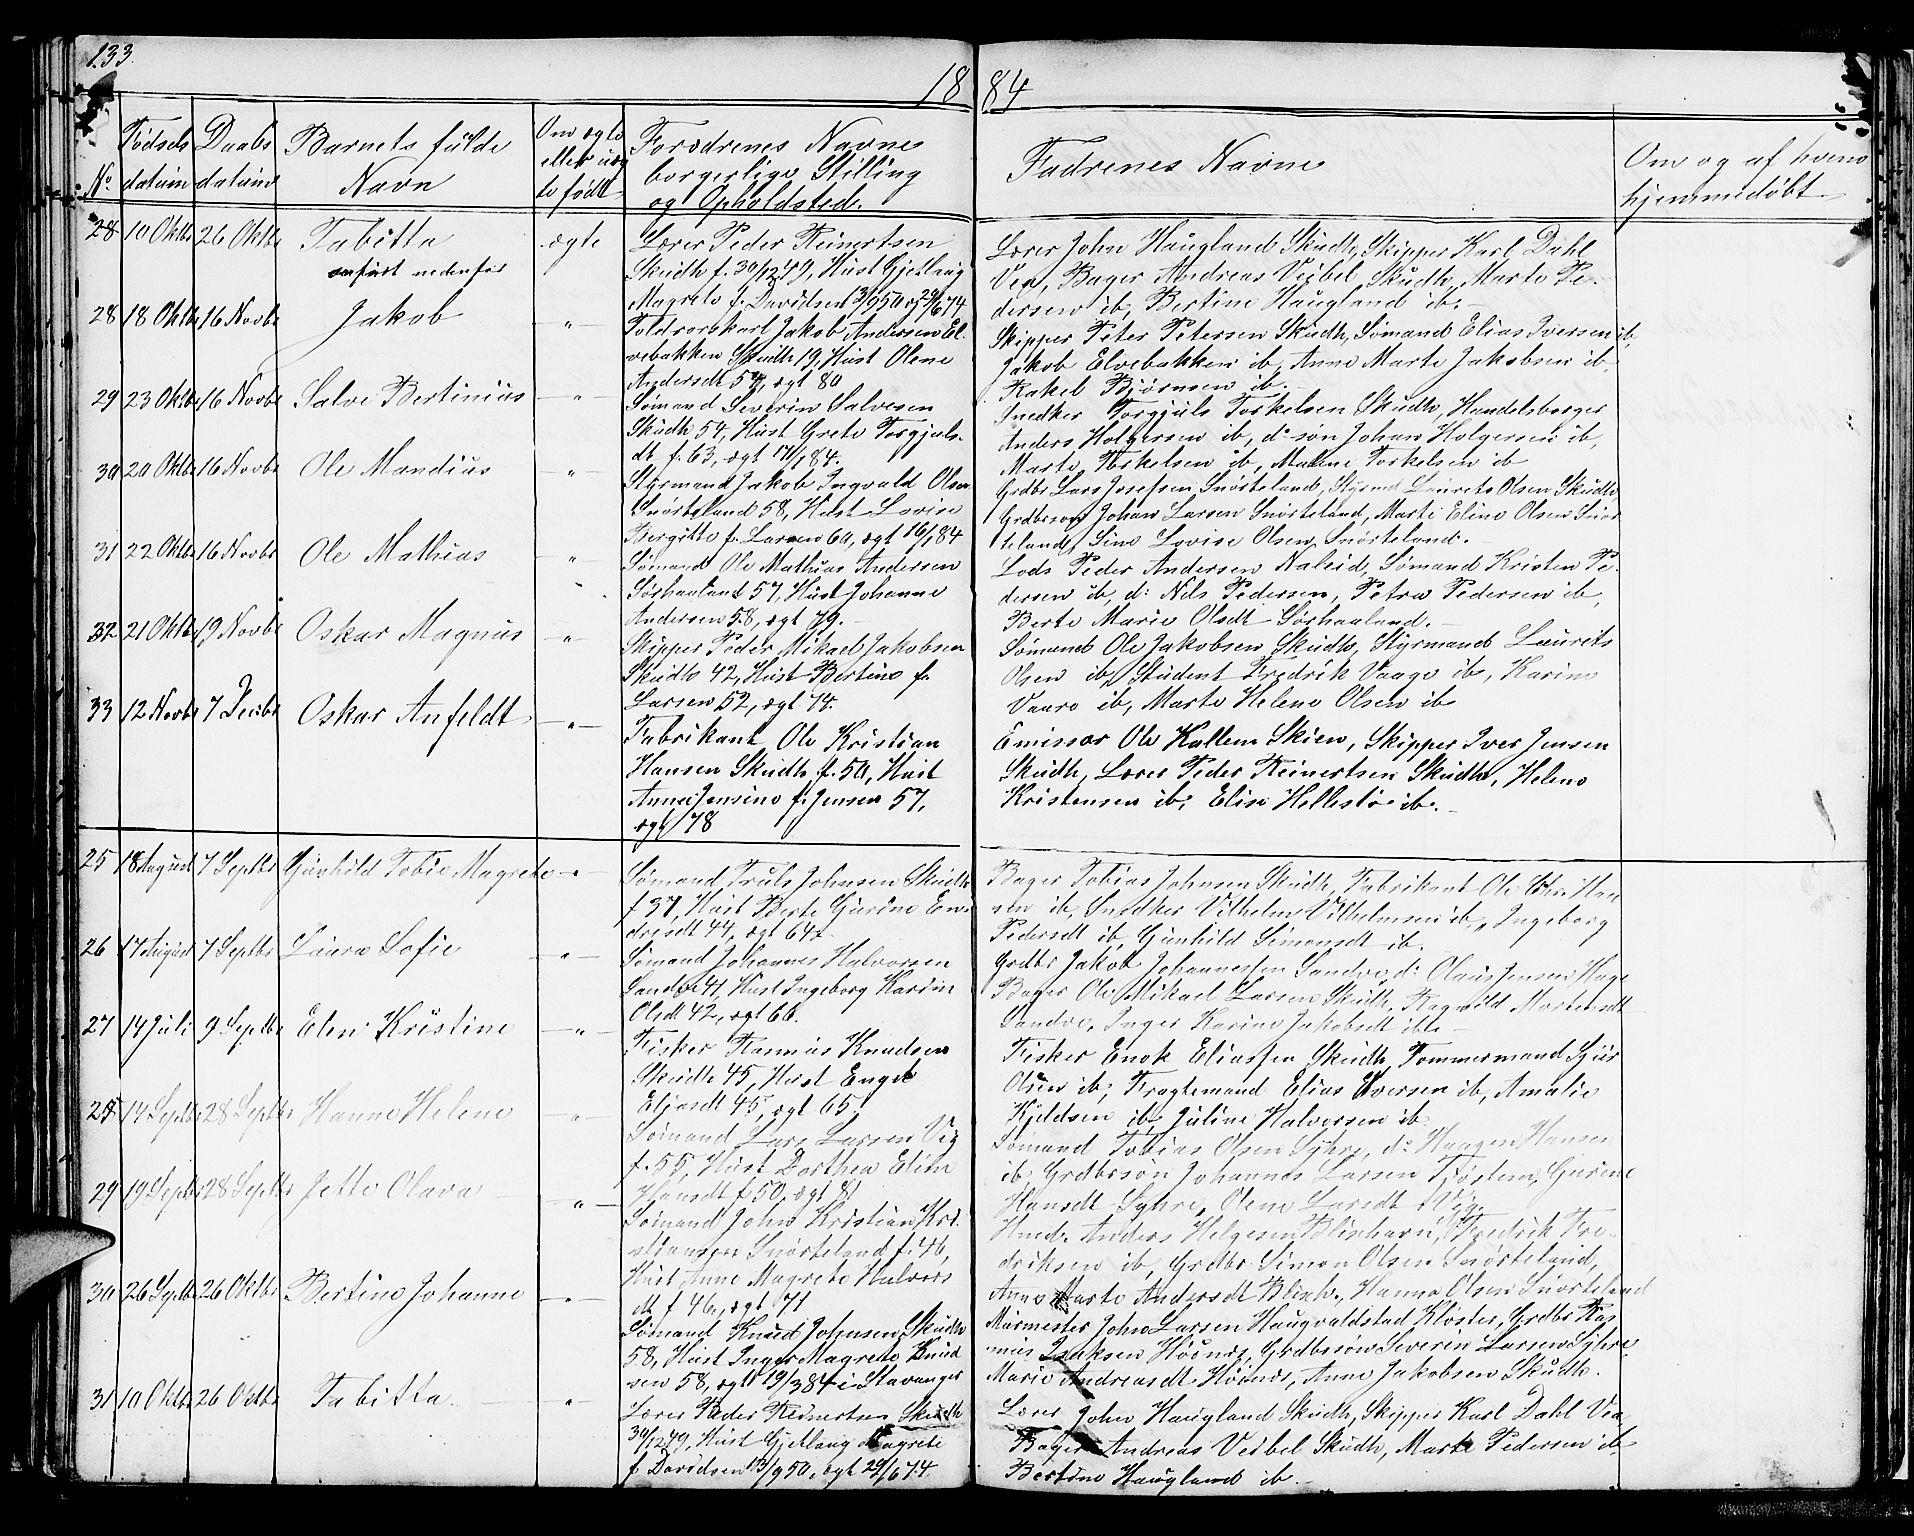 133.
18 84
No.
Fødsels datum
Daabs datum
Barnets fulde Navn
Om ægte eller uægte født
Forældrenes Navne borgerlige Stilling og Opholdsted.
Fadrenes Navne
Om og af hvem hjemmedøbt
28 10 Oktbr 26 Oktbr Tabitta ægte
anført nedenfor
Lærer Peder Reinertsen
Skudh f. 30/12 49, Hust Gjetlaug
Magrete f. Davidsen 13/9 50 ægt 29/6 74
Lærer John Haugland Skudh, Skipper Karl Dahl
Vea, Bager Andreas Veibel Skudh, Marte Pe-
dersen ib, Bertine Haugland ib.
28 18 Oktbr 16 Novbr Jakob -"-
Toldrorskarl Jakob Andersen El-
vebakken Skudh 19, Hust Olene
Andersdt 57, ægt 80
Skipper Peter Petersen Skudh, Sømand Elias Iversen ib,
Jakob Elvebakken ib, Anne Marte Jakobsen ib,
Rakel Bjørnsen ib.
29 23 Oktbr 16 Novbr Salve Bertinius -"-
Sømand Severin Salvesen
Skudh 54, Hust Grete Torgjuls-
dt f. 63, ægt 84.
Snedker Torgjuls Torkelsen Skudh, Handelsborger
Anders Holgersen ib, d: søn Johan Holgersen ib,
Marte Torkelsen ib, Malene Torkelsen ib
30 20 Oktbr 16 Novbr Ole Mandius -"-
Styrmand Jakob Ingvald Olsen
Snørteland 58, Hust Lovise
Bergitte f. Larsen 60, ægt 16/1 84
Grdbr Lars Josefsen Snørteland, Styrmd Laurets Olsen Skudh,
Grdbrsøn Johan Larsen Snørteland, Marti Eline Olsen Snør
teland, Sine Lovise Olsen Snørteland.
31 22 Oktbr 16 Novbr Ole Mathias -"-
Sømand Ole Mathias Andersen
Sørhaaland 57, Hust Johanne
Andersen 58, ægt 79.
Lods Peder Andersen Naleid, Sømand Kristen Pe-
dersen ib, d: Nils Pedersen, Petra Pedersen ib,
Berte Marie Olsdt Sørhaaland.
32 21 Oktbr 19 Novbr Oskar Magnus -"-
Skipper Peder Mikael Jakobsen
Skudh 42, Hust Bertine f.
Larsen 52, ægt 74.
Sømand Ole Jakobsen Skudh, Styrmand Laurits
Olsen ib, Student Fredrik Vaage ib, Karine
Vaare ib, Marte Helene Olsen ib
33 12 Novbr 7 Decbr Oskar Anfeldt -"-
Fabrikant Ole Kristian
Hansen Skudh f. 50, Hust
Anne Jensine f. Jensen 57,
ægt 78
Emissær Ole Kallem Skien, Skipper Iver Jensen
Skudh, Lærer Peder Reinertsen Skudh, Helene
Kristensen ib, Elise Hellestø ib.
25 18 August 7 Septbr Gunhild Tobie Magrete -"-
Sømand Truls Johnsen Skudh
f 37, Hust Berte Gurine En-
dresdt 44, ægt 64.
Bager Tobias Johnsen Skudh, Fabrikant Ole Chr. Han
sen ib, Snedker Vilhelm Vilhelmsen ib, Ingeborg
Pedersdt ib, Gunhild Simonsdt ib.
26 17 August 7 Septbr Laura Sofie -"-
Sømand Johannes Halvorsen
Sandve 41, Hust Ingeborg Karine
Olsdt 42, ægt 66.
Grdbr Jakob Johannessen Sandve, d: Olaus Jensen Hage
Bager Ole Mikael Larsen Skudh, Ragnild Mortensdt
Sandve, Inger Karine Jakobsdt ib.
27 14 Juli 9 Septbr Elen Kristine -"-
Fisker Rasmus Knudsen
Skudh 45, Hust Engel
Eliasdt 45, ægt 65.
Fisker Enok Eliassen Skudh, Tømmermand Sjur
Olsen ib, Fragtemand Elias Iversen ib, Amalie
Kjeldsen ib, Juline Halvorsen ib.
28 14 Septbr 28 Septbr Hanne Helene -"-
Sømand Lars Larsen Vig
f. 55, Hust Dorthea Elin
Hansdt f 50, ægt 81
Sømand Tobias Olsen Syhre, d: Haagen Hansen
ib, Grdbrsøn Johannes Larsen Tjøstem, Gurine
Hansdt Syhre, Olene Larsdt Vig.
29 19 Septbr 28 Septbr Jette Olava -"-
Sømand John Kristian Kri-
stiansen Snørteland f. 46,
Hust Anne Magrete Halvors
dt f 46, ægt 71
Husmd. Anders Helgesen Blixhavn, Fredrik Fre-
driksen ib, Grdbr Simon Olsen Snørteland,
Anne Marte Andersdt Blixh., Hanna Olsen Snørteland
30 26 Septbr 26 Oktbr Bertine Johanne -"-
Sømand Knud Johnsen Skudh
58, Hust Inger Magrete Knud
sen 58, ægt 19/3 84 i Stavanger
Murmester John Larsen Haugvaldstad Kloster, Grdbr Ras
mus Isaksen Høines, Grdbrsøn Severin Larsen Syhre
Marie Andreasdt Høines, Anne Jakobsen Skudh.
31 10 Oktbr 26 Oktbr Tabitta -"-
Lærer Peder Reinertsen Skudh
30/12 49, Hust Gjetlaug Magrete
f Davidsen 13/9 50, ægt 29/6 74.
Lærer John Haugland Skudh, Skipper Karl Dahl Vea,
Bager Andreas Veibel Skudh, Marte Pedersen ib
Bertine Haugland ib.